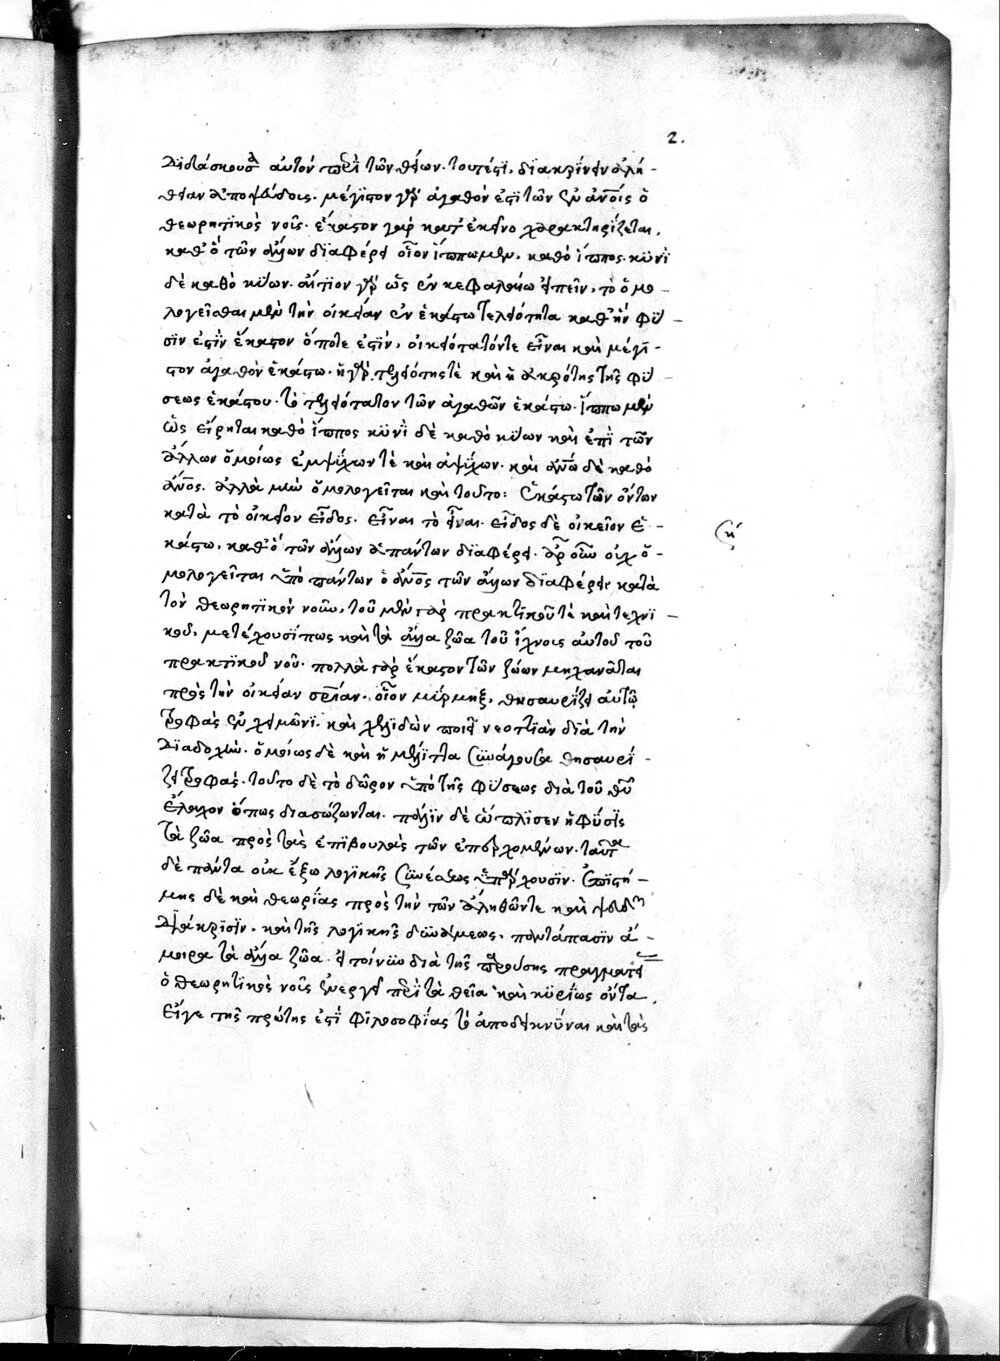 2.
διδάσκουσα αὐτὸν περὶ τῶν θείων. τουτέστι, διακρίνειν ἀλή-
θειαν ἀπὸ ψεύδους. μέγιστον γὰρ ἀγαθὸν ἐστὶ τῶν ἐν ἀνοις ὁ
θεωρητικὸς νοῦς. ἕκαστον γὰρ κατ' ἐκεῖνο χαρακτηρίζεται,
καθ' ὃ τῶν ἄλλων διαφέρει οἷον ἵππω μὲν, καθὸ ἵππος. κυνὶ
δὲ καθὸ κύων. αἴτιον γὰρ ὡς ἐν κεφαλαίω εἰπεῖν, τὸ ὁμο-
λογεῖσθαι μὲν τὴν οἰκείαν ἐν ἑκάστω τελειότητα καθ' ἣν φύ-
σιν ἐστὶν ἕκαστον ὅποτε ἐστὶν, οἰκειότατόντε εἶναι καὶ μέγι-
στον ἀγαθὸν ἑκάστω. ἡ γὰρ τελειότης τὲ καὶ ἡ ἀκρότης τῆς φύ-
σεως ἑκάστου. τὸ τελειότατον τῶν ἀγαθῶν ἑκάστω. ἵππω μὲν
ὡς εἴρηται καθὸ ἵππος κυνὶ δὲ καθὸ κύων καὶ ἐπὶ τῶν
ἄλλων ὁμοίως ἐμψύχων τὲ καὶ ἀψύχων. καὶ ἀνω δὲ καθὸ
ἄνος. ἀλλὰ μὴν ὁμολογεῖται καὶ τοῦτο: ἑκάστω τῶν ὄντων
κατὰ τὸ οἰκεῖον εἶδος. εἶναι τὸ εἶναι. εἶδος δὲ οἰκεῖον ἑ-
κάστω, καθ' ὃ τῶν ἄλλων ἁπάντων διαφέρει. ἆρ' οὖν οὐχ ὁ-
μολογεῖται ὑπὸ πάντων ὁ ἄνος τῶν ἄλλων διαφέρειν κατὰ
τὸν θεωρητικὸν νοῦν, τοῦ μὲν γὰρ πρακτικοῦ τὲ καὶ τεχνι-
κοῦ, μετέχουσί πως καὶ τὰ ἄλλα ζῶα τοῦ ἴχνους αὐτοῦ τοῦ
πρακτικοῦ νοῦ. πολλὰ γὰρ ἕκαστον τῶν ζώων μηχανᾶται
πρὸς τὴν οἰκείαν σριαν. οἷον μύρμηξ, θησαυρίζει αὐτῶ
τροφὰς ἐν χειμῶνι. καὶ χελιδὼν ποιεῖ νεοττιὰν διὰ τὴν
διαδοχὴν. ὁμοίως δὲ καὶ ἡ μέλιττα συνάγουσα θησαυρί-
ζει τροφάς. τοῦτο δὲ τὸ δῶρον ὑπὸ τῆς φύσεως διὰ τοῦ θυ
ἔλαχον ὅπως διασώζωνται. πάλιν δὲ ὥπλισεν ἡ φύσις
τὰ ζῶα πρὸς τὰς ἐπιβουλὰς τῶν ἐπερχομένων. ταῦτα
δὲ πάντα οὐκ ἔξω λογικῆς συνέσεως ὑπάρχουσιν. ἐπιστή-
μης δὲ καὶ θεωρίας πρὸς τὴν τῶν ἀληθῶντε καὶ ψευδῶν
διάκρισιν. καὶ τῆς λογικῆς δυνάμεως. παντάπασιν ἄ-
μοιρα τὰ ἄλλα ζῶα. εἰ τοίνυν διὰ τῆς παρούσης πραγματεί
ὁ θεωρητικὸς νοῦς ἐνεργεῖ περὶ τὰ θεῖα καὶ κυρίως ὄντα.
εἴγε τῆς πρώτης ἐστὶ φιλοσοφίας τὸ ἀποδεικνύναι καὶ τὰς